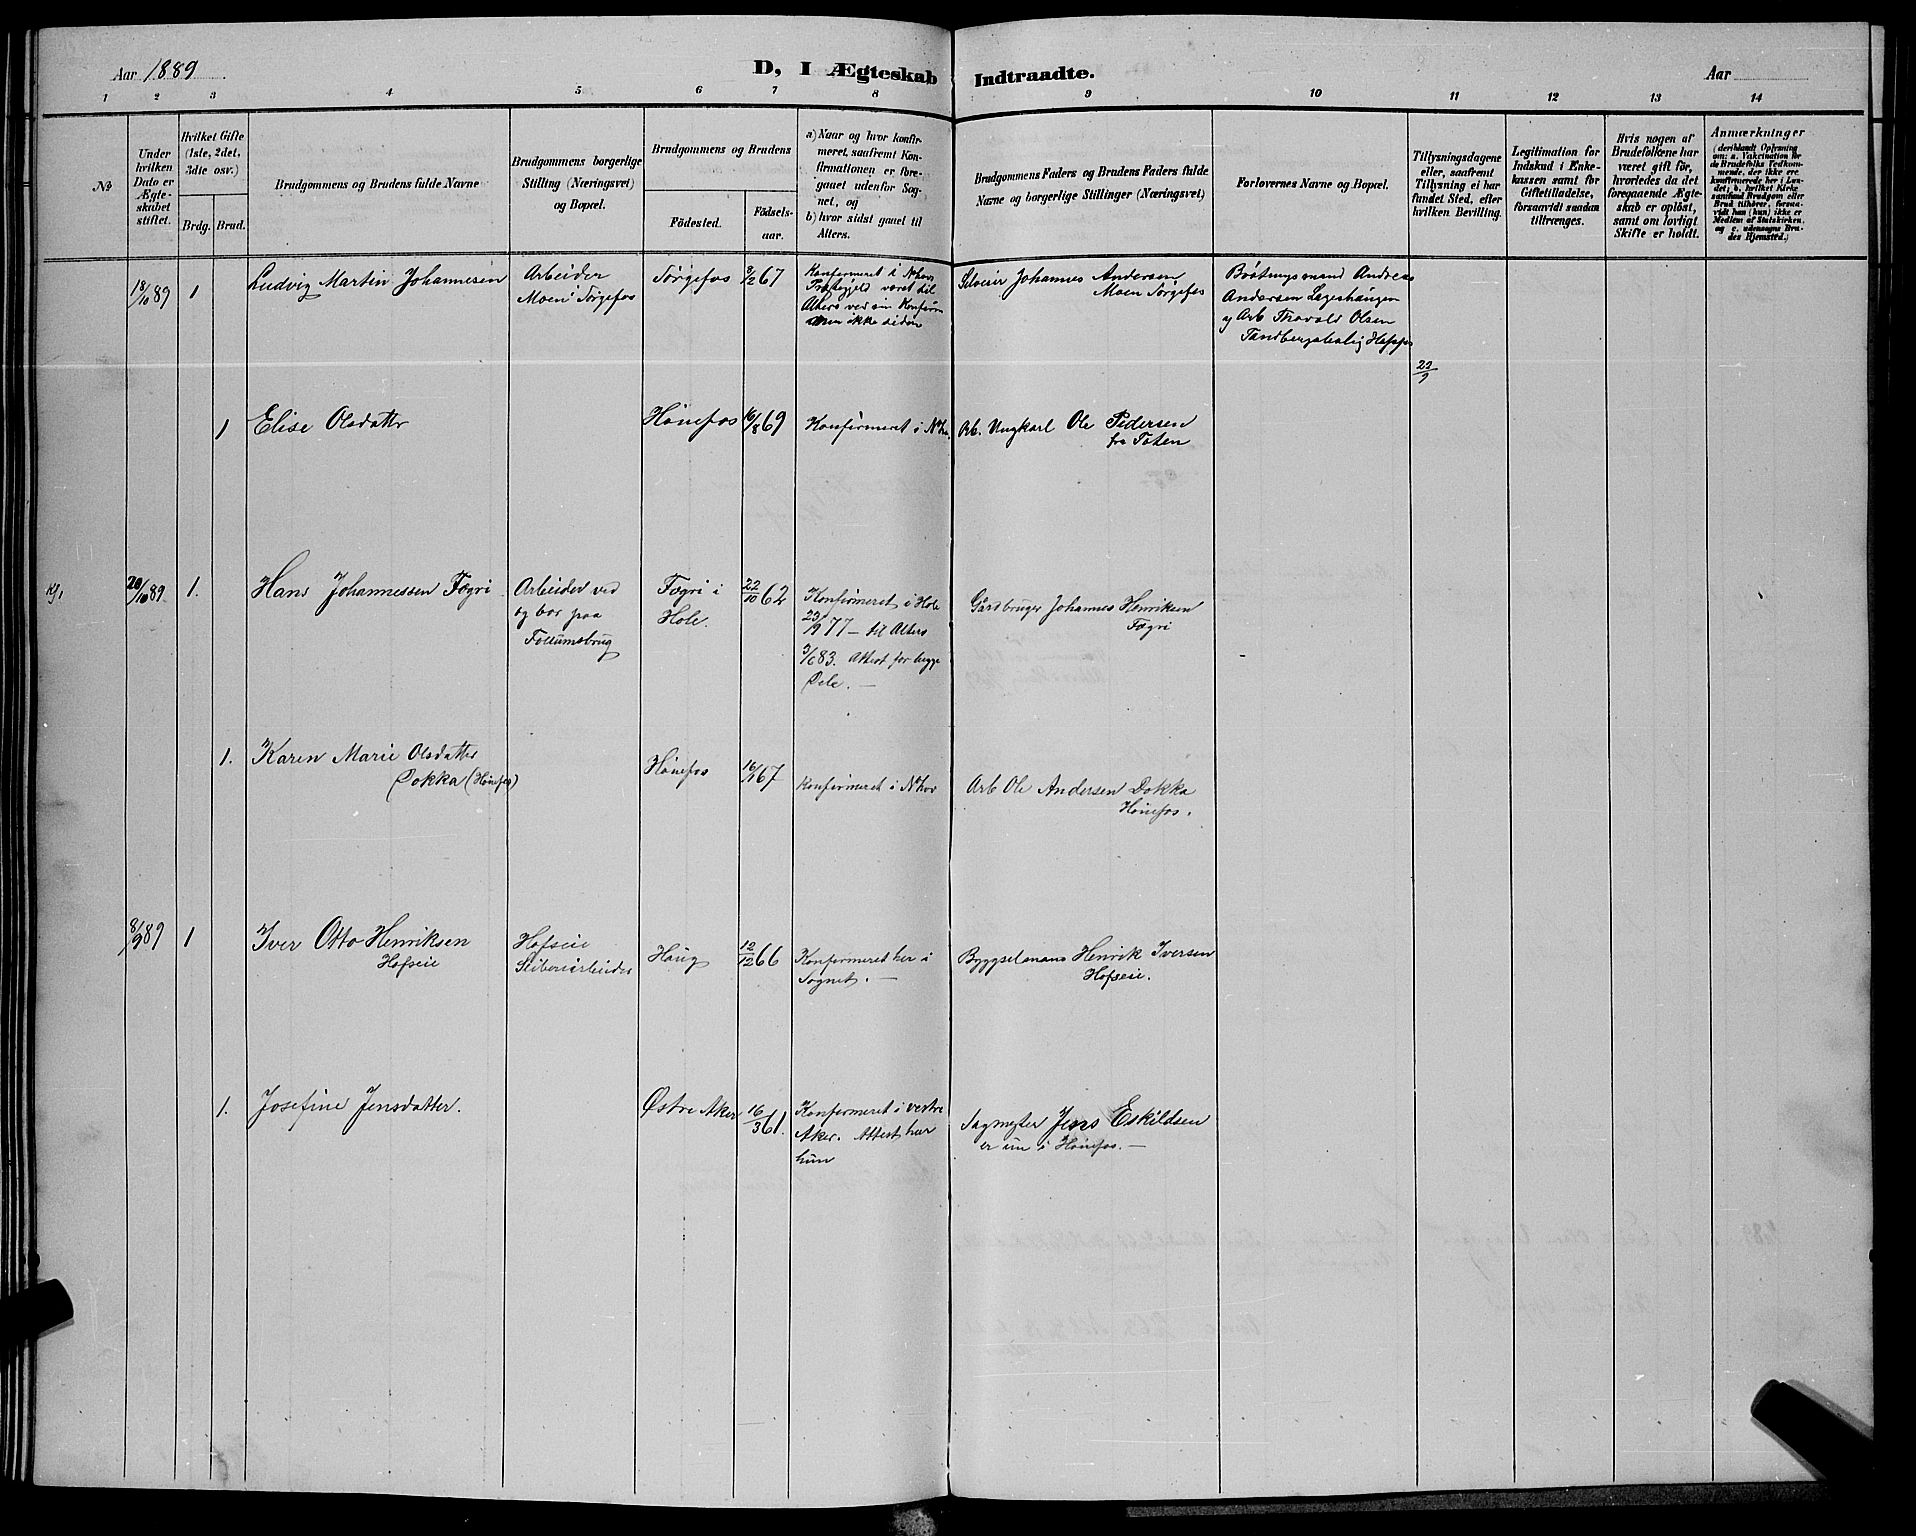 Aar 1889
D, I Ægteskab Indtraadte.
Aar
1 2 3 4 5 6 7 8 9 10 11 12 13 14
No
Under hvilken Dato er Ægteskabet stiftet.
Hvilket Gifte (1ste, 2det, 3die osv.)
Brdg. Brud.
Brudgommens og Brudens fulde Navne
Brudgommens borgerlige Stilling (Næringsvei) og Bopæl.
Brudgommens og Brudens
Födested.
Födselsaar.
a) Naar og hvor konfirmeret, saafremt Konfirmationen er foregaaet udenfor Sognet, og
b) hvor sidst gaaet til Alters.
Brudgommens Faders og Brudens Faders fulde Navne og borgerlige Stillinger (Næringsvei)
Forlovernes Navne og Bopæl.
Tillysningsdagene eller, saafremt Tillysning ei har fundet Sted, efter hvilken Bevilling.
Legitimation for Indskud i Enkekassen samt for Giftetilladelse, forsaavidt saadan tiltrænges.
Hvis nogen af Brudefolkene har været gift før, hvorledes da det foregaaende Ægteskab er opløst, samt om lovligt Skifte er holdt.
Anmærkninger
(deriblandt Oplysning om: a. Vakcination for de Brudefolks Vedkommende, der ikke ere konfirmerede her i Landet; b. hvilket Kirkesamfund Brudgom eller Brud tilhører, forsaavidt han (hun) ikke er Medlem af Statskirken, og c. udensogns Brudes Hjemsted.)
18/10 89 1
Ludvig Martin Johannesen
Arbeider
Moen i Tørgefos
Tørgefos
8/2 67
Konfirmeret i Nhov
Præstegjeld været til
Alters ved sin Konfirm
men ikke siden
Selveier Johannes Andersen
Moen Tørgefos
Andreas
Andersen
og Arb Thorvald Olsen
22/9
1 Elise Olsdatter
Hønefos
16/8 69
Konfirmeret i Nhov.
Arb. Ungkarl Ole Pedersen
fra Toten
Kj,
20/10 89. 1.
Hans Johannessen Fægri
Arbeider ved
og bor paa
Follumsbrug
Fægri i
Hole.
22/10 62
Konfirmeret i Hole
23/9 77 – til Alters
3/6 83. Attest for begge
Dele. —
Gårdbruger Johannes Henriksen
Fægri
1. Karen Marie Olsdatter
Dokka (Hønefos)
Hønefos
16/9 67
Konfirmeret i Nhov
Arb Ole Andersen Dokka
Hønefos.
8/9 89 1
Iver Otto Henriksen
Hofseie
Hofseie
Sliberiarbeider
Haug
12/12 66
Konfirmeret her i
Sognet. —
Bygselmans Henrik Iversen
Hofseie.
1. Josefine Jensdatter.
Østre Aker
16/3 61.
Konfirmeret i vestre
Aker. Attest har
hun
Sagmester Jens Eskildsen
er nu i Hønefos. —